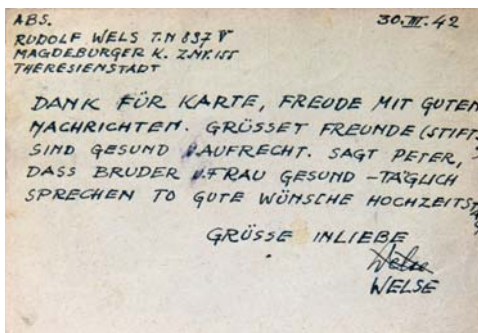 ABS. 30.III.42
RUDOLF WELS T.N 837 V
MAGDEBURGER K. Z.NR.155
THERESIENSTADT
DANK FÜR KARTE, FREUDE MIT GUTEN
NACHRICHTEN. GRÜSSET FREUNDE (STIFT
SIND GESUND U. AUFRECHT. SAGT PETER,
DASS BRUDER U. FRAU GESUND - TÄGLICH
SPRECHEN TO GUTE WÜNSCHE HOCHZEITSTAG
GRÜSSE INLIEBE
WELSE